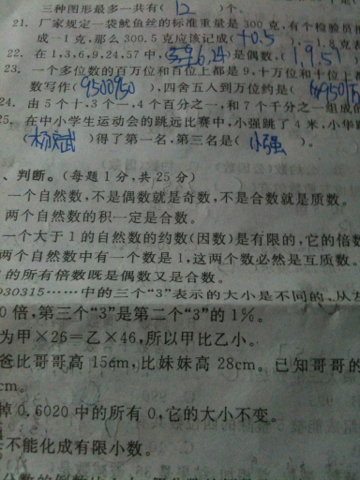 三种图形最多一共有( 12 )个。
21. 厂家规定一袋鱿鱼丝的标准重量是300克,有个检验员
成-1克,那么300.5克应该记成( +0.5 )
22. 在1,3,6,9,24,57中,( )是偶数,( 1,9,57
23. 一个多位数的百万位和百位上都是9,十万位和十位上
数写作( ),四舍五入到万位约是(
24. 由5个十、3个一、4个百分之一,和7个千分之一组成
25. 在中小学生运动会的跳远比赛中,小强跳了4米,小华跳
( 杨斌 )得了第一名,第三名是( 小强 )。
、判断。(每题1分,共25分)
一个自然数,不是偶数就是奇数,不是合数就是质数。
两个自然数的积一定是合数。
一个大于1的自然数的约数(因数)是有限的,它的倍数
两个自然数中有一个数是1,这两个数必然是互质数。
的所有倍数既是偶数又是合数。
030315……中的三个“3”表示的大小是不同的,从左
0倍,第三个“3”是第二个“3”的1%。
为甲×26=乙×46,所以甲比乙小。
爸比哥哥高15cm,比妹妹高28cm。已知哥哥的
cm。
掉0.6020中的所有0,它的大小不变。
不能化成有限小数。